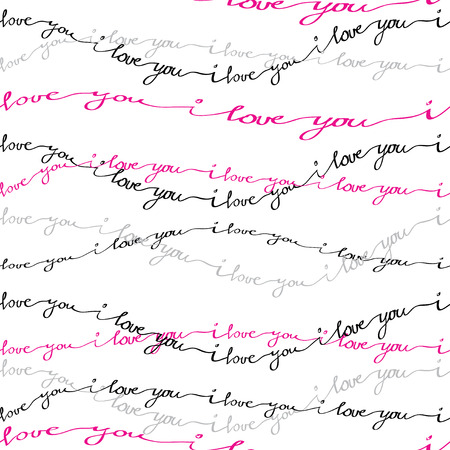 love you i love you i
love you i love you i love you i love you
love you i love you i love you i love you
love you i love you i
love you i love you i love you i love you i
love you i love you i love you i love you i
love you i love you i love you i love you i
love you i love you i love you i love you i
love you i love you i love you i love you i
love you i love you i love you i love you i
love you i love you i love you i love you i
love you i love you i love you i love you i
love you i love you i